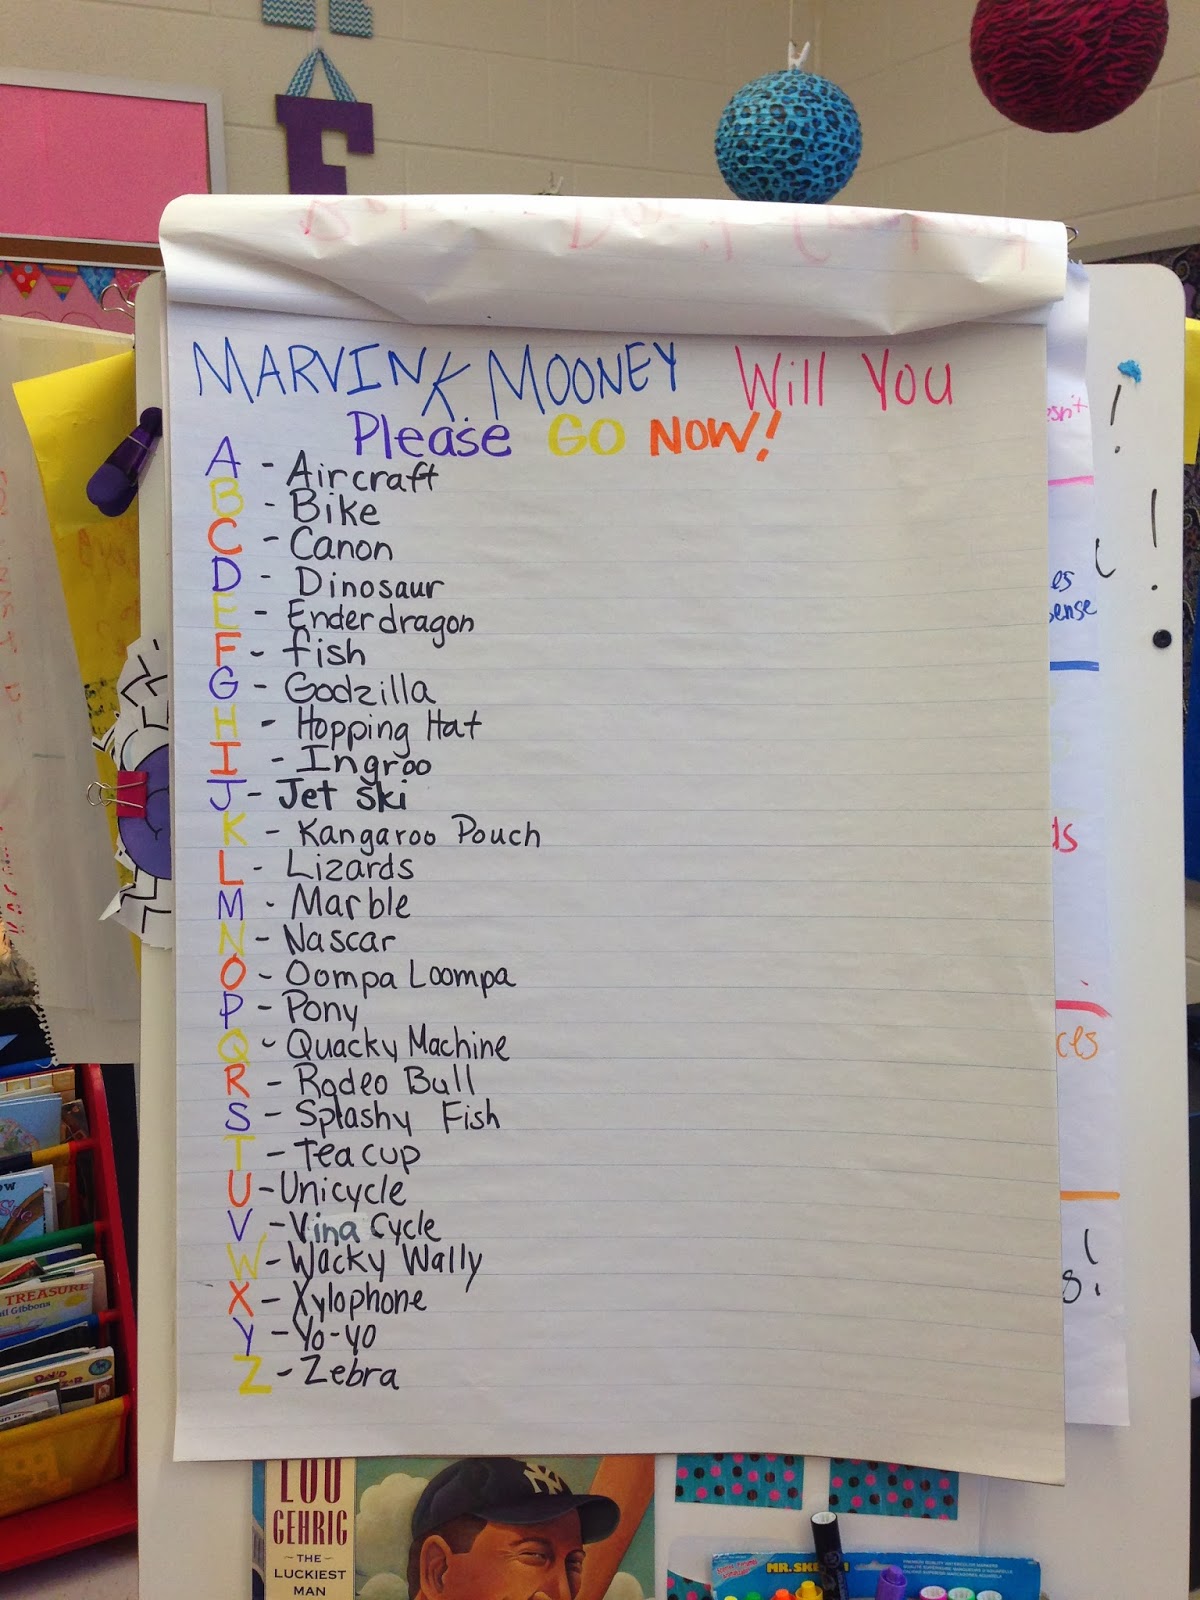 MARVIN K. MOONEY Will You
Please GO NOW!
A - Aircraft
B - Bike
C - Canon
D - Dinosaur
E - Enderdragon
F - fish
G - Godzilla
H - Hopping Hat
I - Ingroo
J - Jet Ski
K - Kangaroo Pouch
L - Lizards
M - Marble
N - Nascar
O - Oompa Loompa
P - Pony
Q - Quacky Machine
R - Rodeo Bull
S - Splashy Fish
T - Teacup
U - Unicycle
V - Vina Cycle
W - Wacky Wally
X - Xylophone
Y - Yo-yo
Z - Zebra
LOU
GEHRIG
~ THE ~
LUCKIEST
MAN
NY
MR. SKETCH
TREASURE
Gibbons